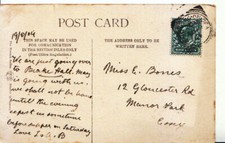 POST CARD
THIS SPACE MAY BE USED
FOR COMMUNICATION
IN THE BRITISH ISLES ONLY
THE ADDRESS ONLY TO BE
WRITTEN HERE.
We are just going over
to Brake Hall, May
is going with us.
we shall not be home
until the evening
expect us sometime
before supper on Saturday
Love L & B
Miss E. Bones
12 Gloucester Rd
Manor Park
Essex